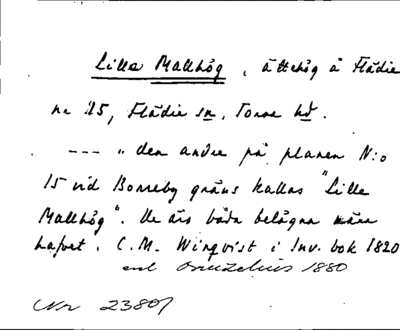 Lilla Mallhög, ättehög å Flädie
nr 15, Flädie sn, Torna hd.
--- " den andre på planen N:o
15 vid Bonreby gräns kallas "Lille
Mallhög". De äro båda belägna nära
hafvet. C.M. Winqvist i Inv. bok 1820
enl Bruzelius 1880
Nr 23807